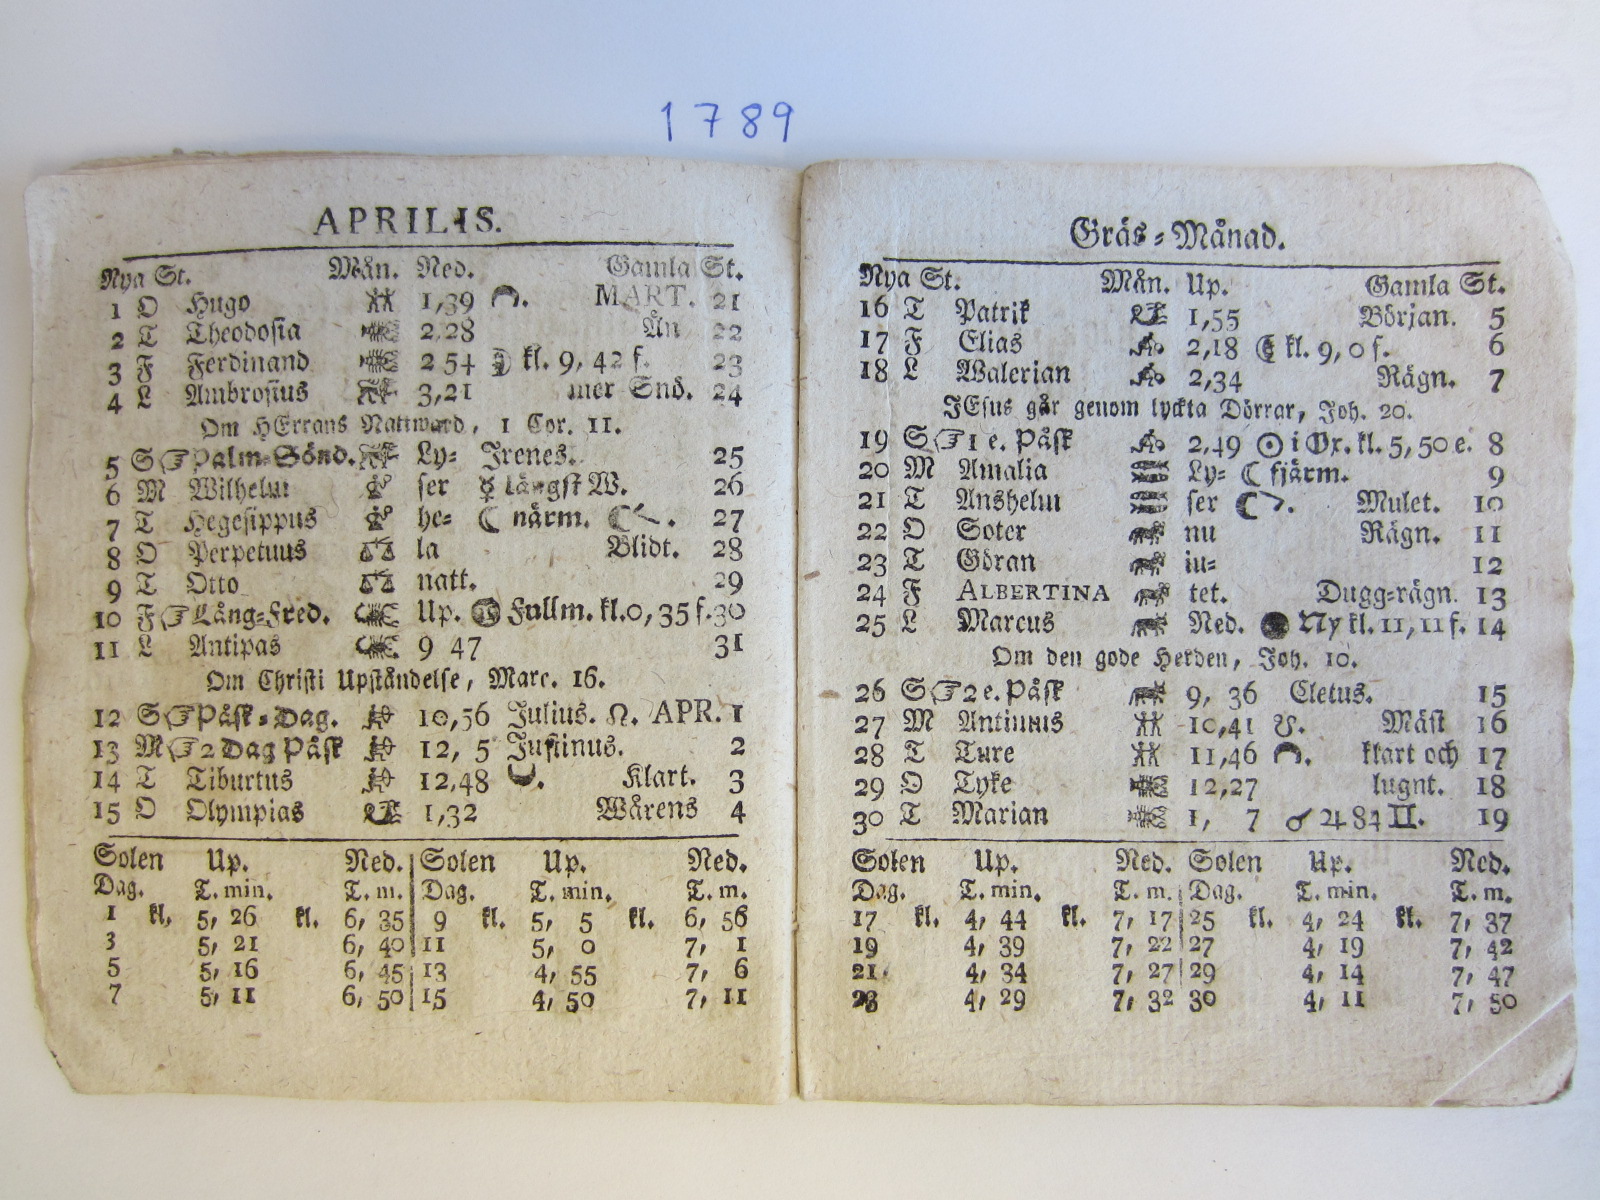 1789
APRILIS.
Nya St. Mån. Ned. Gamla St.
1 O Hugo 1,39 MART. 21
2 T Theodosia 2,28 Än 22
3 F Ferdinand 2 54 kl. 9, 42 f. 23
4 L Ambrosius 3,21 mer Snö. 24
Om HErrans Nattward, 1 Cor. 11.
5 S ☞ Palm-Sönd. Ly- Irenes. 25
6 M Wilhelm ser ☿ längst W. 26
7 T Hegesippus he- ☾ närm. ☾ 27
8 O Perpetuus la Blidt. 28
9 T Otto natt. 29
10 F ☞ Lång-Fred. Up. Fullm. kl. 0, 35 f. 30
11 L Antipas 9 47 31
Om Christi Upståndelse, Marc. 16.
12 S ☞ Påsk-Dag. 10,56 Julius. ☊. APR. 1
13 M ☞ 2 Dag Påsk 12, 5 Justinus. 2
14 T Tiburtus 12,48 Klart. 3
15 O Olympias 1,32 Wårens 4
Solen Up. Ned. Solen Up. Ned.
Dag. T. min. T. m. Dag. T. min. T. m.
1 kl. 5, 26 kl. 6, 35 9 kl. 5, 5 kl. 6, 56
3 5, 21 6, 40 11 5, 0 7, 1
5 5, 16 6, 45 13 4, 55 7, 6
7 5, 11 6, 50 15 4, 50 7, 11
Gräs-Månad.
Nya St. Mån. Up. Gamla St.
16 T Patrik 1,55 Början. 5
17 F Elias 2,18 kl. 9, 0 f. 6
18 L Walerian 2,34 Rägn. 7
JEsus går genom lyckta Dörrar, Joh. 20.
19 S ☞ 1 e. Påsk 2,49 ☉ i Ox. kl. 5, 50 e. 8
20 M Amalia Ly- ☾ fjärm. 9
21 T Anshelm ser ☾ Mulet. 10
22 O Soter nu Rägn. 11
23 T Göran in- 12
24 F ALBERTINA tet. Dugg-rägn. 13
25 L Marcus Ned. Ny kl. 11, 11 f. 14
Om den gode Herden, Joh. 10.
26 S ☞ 2 e. Påsk 9, 36 Cletus. 15
27 M Antimus 10,41 ☋. Mäst 16
28 T Ture 11,46 klart och 17
29 O Tyke 12,27 lugnt. 18
30 T Marian 1, 7 ☌ ♃ 84 ♊. 19
Solen Up. Ned. Solen Up. Ned.
Dag. T. min. T. m. Dag. T. min. T. m.
17 kl. 4, 44 kl. 7, 17 25 kl. 4, 24 kl. 7, 37
19 4, 39 7, 22 27 4, 19 7, 42
21 4, 34 7, 27 29 4, 14 7, 47
23 4, 29 7, 32 30 4, 11 7, 50